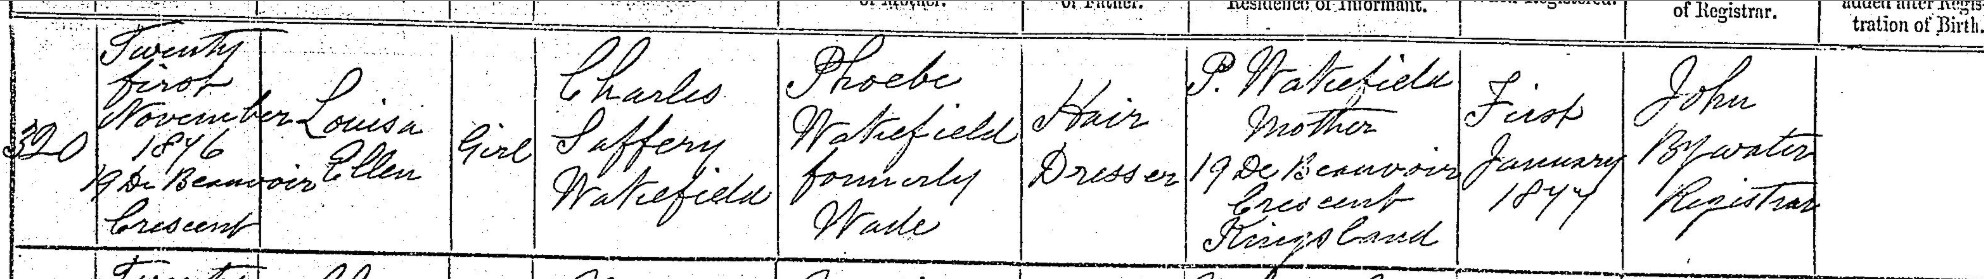 of Mother.
of Father.
Residence of Informant.
of Registrar.
added after Regis-
tration of Birth.
320
Twenty
first
November
1876
19 De Beauvoir
Crescent
Louisa
Ellen
Girl
Charles
Saffery
Wakefield
Phoebe
Wakefield
formerly
Wade
Hair
Dresser
P. Wakefield
Mother
19 De Beauvoir
Crescent
Kingsland
First
January
1877
John
Bywater
Registrar
Twenty